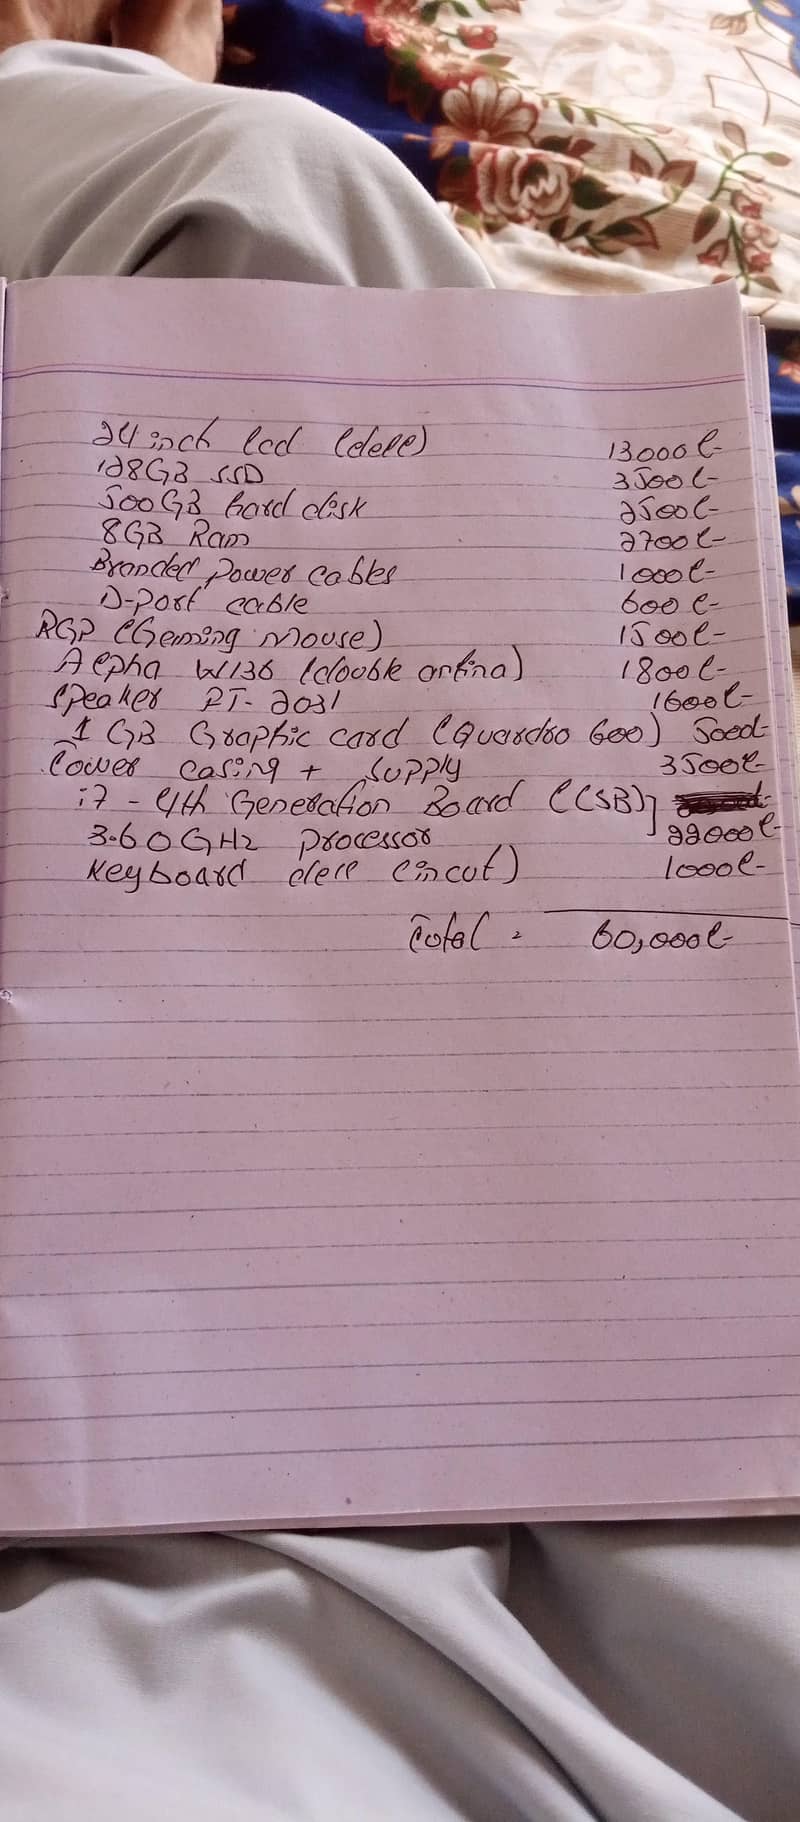 24 inch lcd (dell) 13000/-
128GB SSD 3500/-
500GB hard disk 2500/-
8GB Ram 2700/-
Branded Power cables 1000/-
D-Port cable 600/-
RGP (Geming Mouse) 1500/-
Alpha W136 (double antina) 1800/-
Speaker RT-2031 1600/-
1 GB Graphic card (Quardro 600) 5000/-
Tower casing + Supply 3500/-
i7 - 4th Generation Board (CSB)]
3.60GHz processor 22000/-
Keyboard dell (incut) 1000/-
Total = 60,000/-